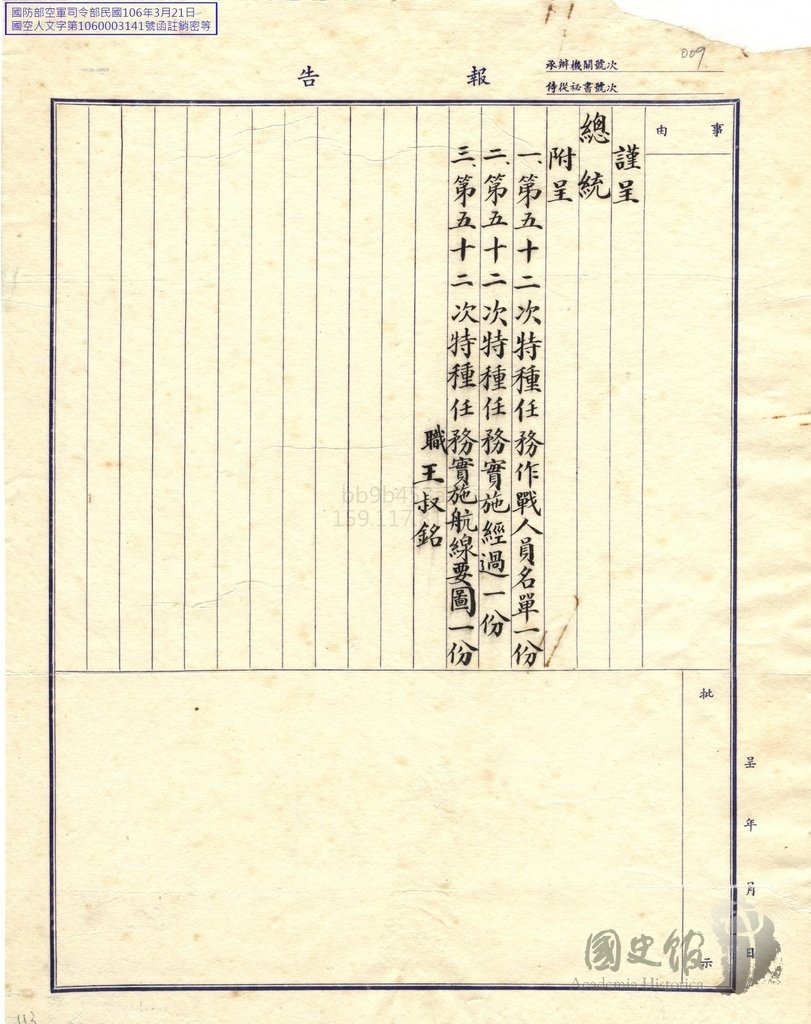 國防部空軍司令部民國106年3月21日
國空人文字第1060003141號函註銷密等
009
報告
承辦機關號次
侍從秘書號次
事由
謹呈
總統
附呈
一、第五十二次特種任務作戰人員名單一份
二、第五十二次特種任務實施經過一份
三、第五十二次特種任務實施航線要圖一份
職王叔銘
批示
呈年月日
國史館
Academia Historica
113